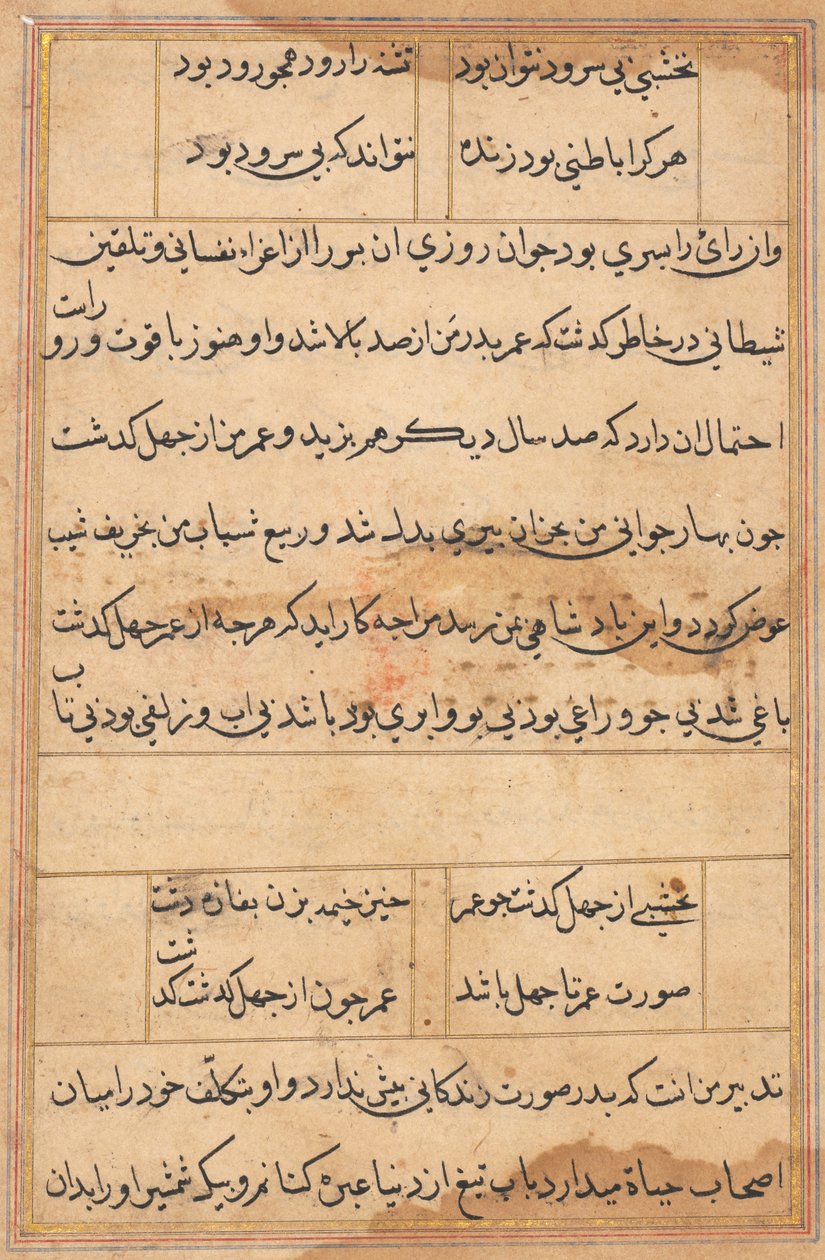 نخشبي بي سرود نتوان بود تشنه را رود همجو رود بود
هر كرا باطني بود زنده نتواند كه بي سرود بود
وان راى را بسري بود جوان روزي ان بسر را از اغراء نفساني و تلقين
شيطاني در خاطر كذشت كه عمر بدر من از صد بالا شد و او هنوز با قوت و رو راست
احتمال ان دارد كه صد سال ديكر هم بزيد و عمر من از جهل كذشت
جون بهار جواني من بخزان بيري بدل شد و ربيع شباب من بخريف شيب
عوض كردد و اين بادشاهي بمن رسد مرا جه كار ايد كه هرجه از عمر جهل كذشت
باغي شد بي جو و راغي بود بي بو و ابري بود باشد بي اب و زلفي بود بي تاب
نخشبي از جهل كذشت جو عمر خيز خيمه بزن بغازه دشت
صورت عمر تا جهل باشد عمر جون از جهل كذشت كذشت
تدبير من انست كه بدر صورت زندكاني بيش ندارد و او بتكلّف خود را ميان
اصحاب حياة ميدارد باب تيغ از دنيا عبره كنانم و بيك شمشير او را بدان